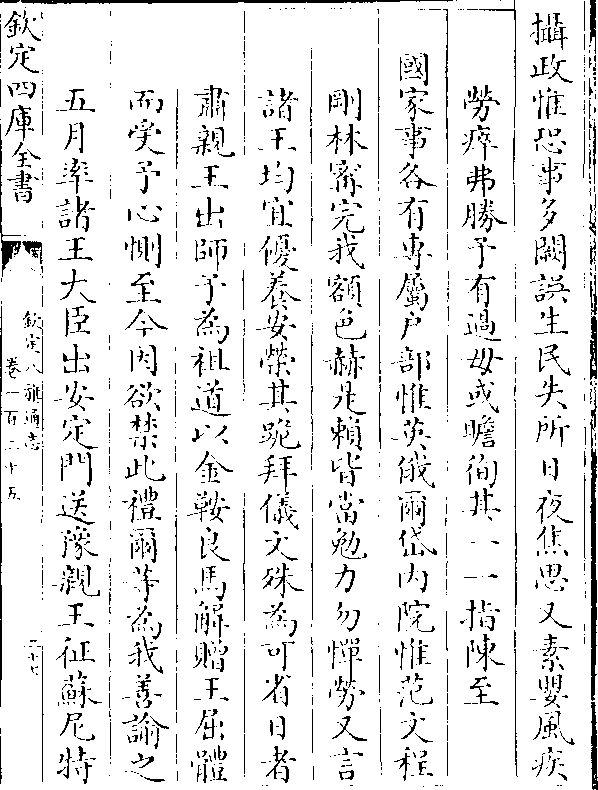 攝政惟恐事多闕誤生民失所日夜焦思又素嬰風疾
勞瘁弗勝予有過毋或瞻徇其一一指陳至
國家事各有專屬户部惟英俄爾岱内院惟范文程
剛林甯完我額色赫是賴皆當勉力勿憚勞又言
諸王均宜優養安榮其跪拜儀文殊為可省日者
肅親王出師予為祖道以金鞍良馬解贈王屈體
而受予心惻至今因欲禁此禮爾等為我善諭之
五月率諸王大臣出安定門送豫親王征蘇尼特
欽定四庫全書
欽定八旗通志
卷一百二十五
二十七